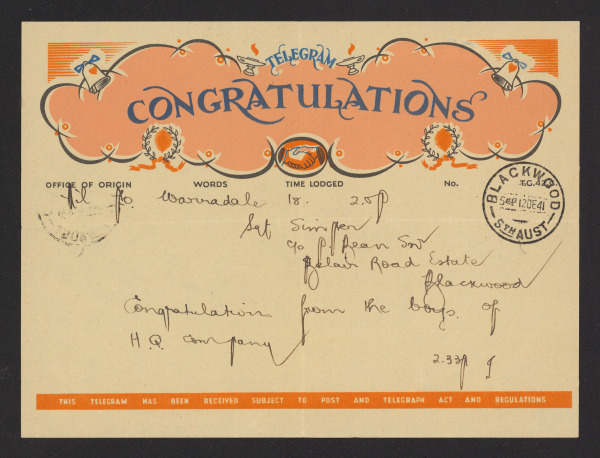 TELEGRAM
CONGRATULATIONS
OFFICE OF ORIGIN WORDS TIME LODGED No. T.G.42
Warradale 18. 2.5p
Sgt Simpson
c/o P. Bean Snr
Belair Road Estate
Blackwood
Congratulations from the boys of
H.Q. Company
2.33p
BLACKWOOD
5:15P 12DE41
STH AUST
THIS TELEGRAM HAS BEEN RECEIVED SUBJECT TO POST AND TELEGRAPH ACT AND REGULATIONS